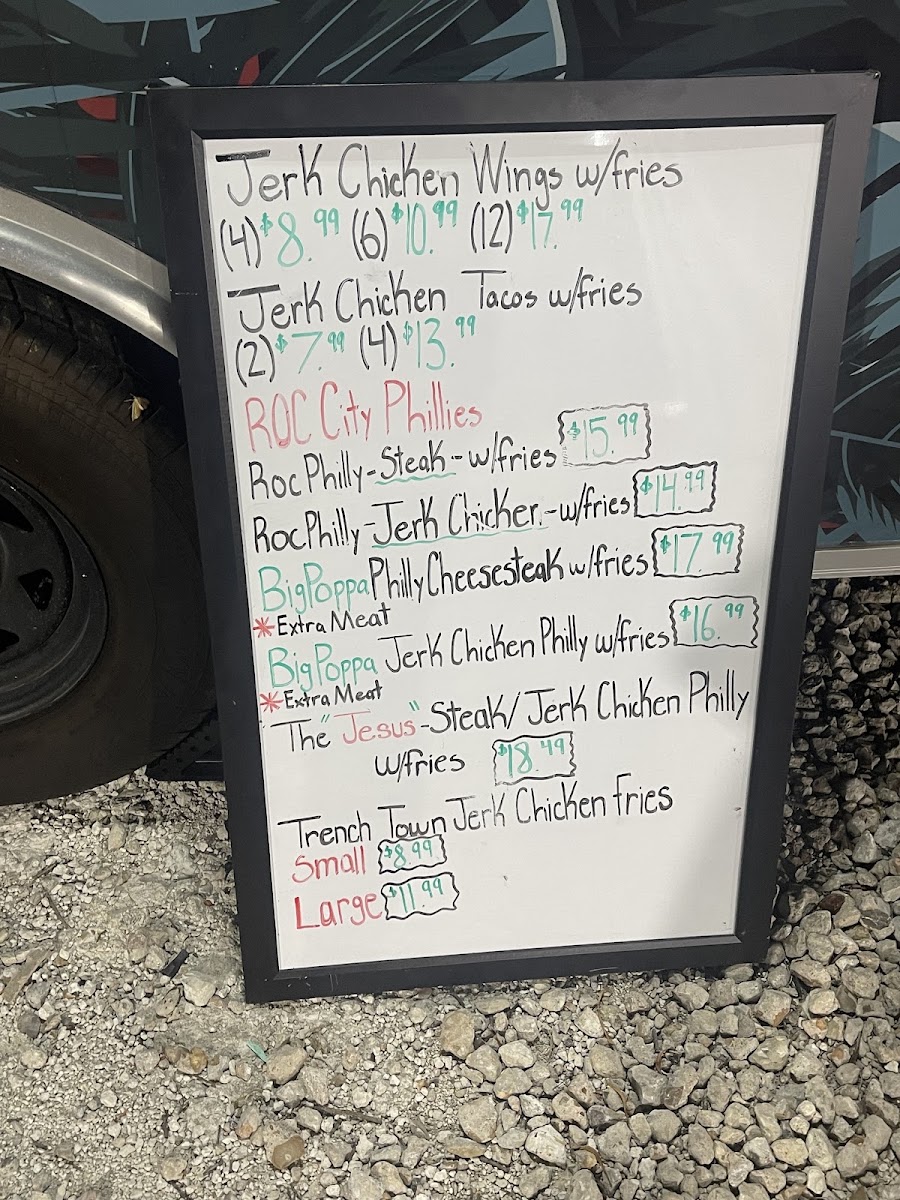 Jerk Chicken Wings w/fries
(4) $8.99 (6) $10.99 (12) $17.99
Jerk Chicken Tacos w/fries
(2) $7.99 (4) $13.99
ROC City Phillies
Roc Philly-Steak-w/fries $15.99
Roc Philly-Jerk Chicken-w/fries $14.99
Big Poppa Philly Cheesesteak w/fries $17.99
*Extra Meat
Big Poppa Jerk Chicken Philly w/fries $16.99
*Extra Meat
The "Jesus"-Steak/Jerk Chicken Philly
w/fries $18.49
Trench Town Jerk Chicken fries
Small $8.99
Large $11.99